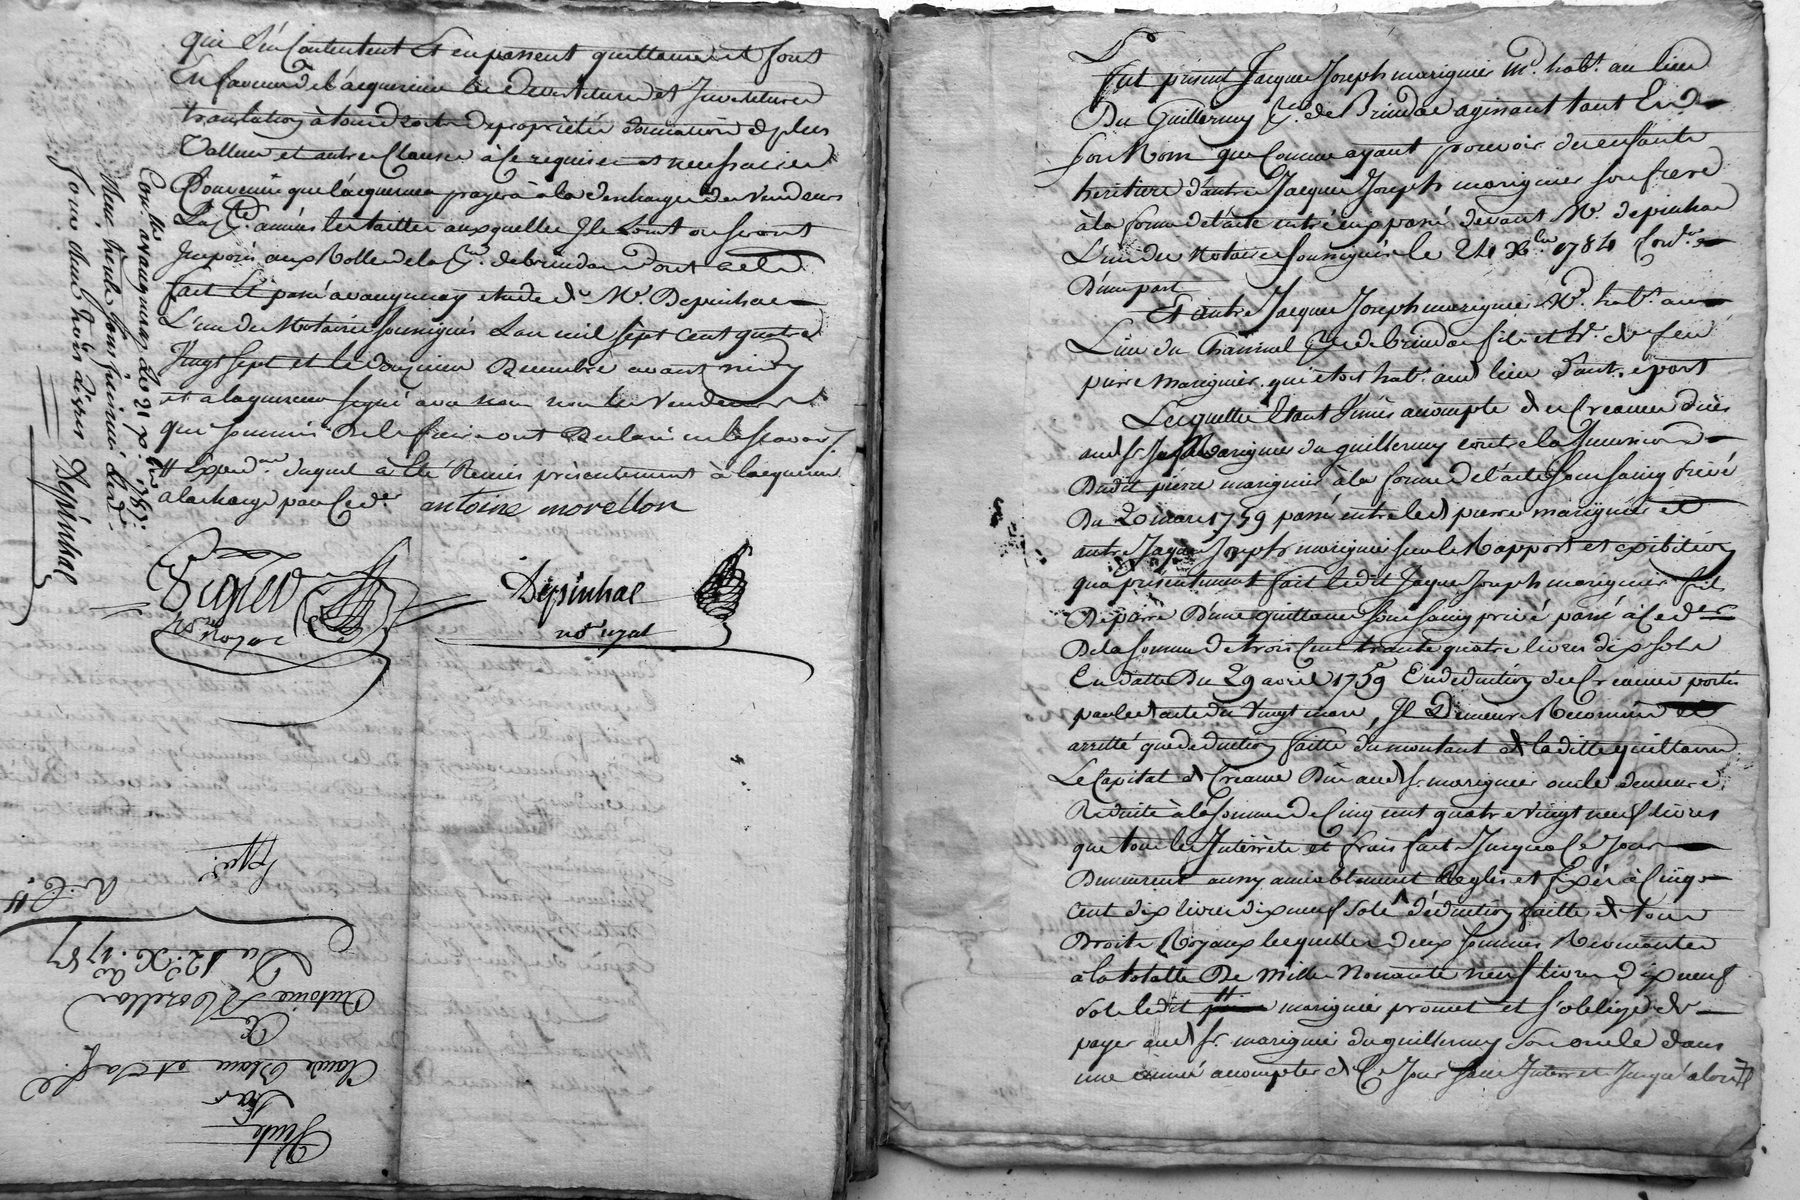 qui s'en Contentent Et en passent quittance et font
En faveur de l'acquereur les devestiture et Investiture
translation à tour de droits de propriété donnation de plus
Valleur et autres Clauses à Ce requises et necessaires
Convenu que l'acquereur payera à la descharge des Vendeurs
années les tailles auxquelles Ils sont ou seront
Imposés aux Rolles de la de brindas Dont acte
fait Et passé a vaugneray etude de Me. Depinhac
L'un des Notaires soussignés L'an mil sept cent quatre
Vingt sept et le Douzieme Decembre avant midy
et a l'acquereur signé avec nous non les Vendeurs
qui sommés De le faire ont Declaré ne le scavoir
Expedon. duquel a été Remis présentement à l'acquereur
à la charge par Ce der
antoine morellon
notaire
Depinhac
no. royal
Con.lle a vaugneray le 21 Xbre 1787.
Depinhac
Vente
Par
Claude Blanc et sa fe.
A
Antoine Morellon
Du 12e. Xbre. 1787
Fut présent Jacques Joseph marignier Md. habt. au lieu
Du Guillermy Psse. de Brindas agissant tant En
son Nom que Comme ayant pouvoir des enfants
heritiers d'autre Jacques Joseph marignier son frere
à la forme de l'acte entr'eux passé devant Me. depinhac
L'un des Notaires soussignés le 24 Xbre 1784
D'une part
Et autre Jacques Joseph marignier Md. habt. au
Lieu du Chaninel Psse de brindas fils et hr. de feu
pierre Marignier qui etoit habt. aud lieu D'autre part
Lesquelles étant Venües a compte des Creances dües
aud sr Jph Marignier du guillermy contre la succession
Dudit pierre marignier à la forme de l'acte sous seing Privé
Du 20 mars 1759 passé entre led pierre marignier et
autre Jaques Joseph marignier sur le Rapport et exibition
qu'a présentement fait ledit Jaques Joseph marignier fils
De pierre D'une quittance sous seing privé passé à Ce der
De la somme de trois Cent trente quatre livres dix sols
En datte Du 29 avril 1759 En deduction des Creances portés
par led acte du Vingt mars, Il Demeure Reconnu et
arretté que deduction faitte du montant de laditte quittance
Le Capital des Creances Düe aud sr. marignier oncle demeure
Reduitte à la somme de Cinq cent quatre Vingt neuf livres
que tous les Intérêts et frais faits Jusqu'à Ce Jour
Demeurent aussy amiablement Réglés et fixés à Cinq
Cent dix livres dix neuf Sols déduction faitte de tous
Droits Royaux lesquelles deux sommes Remontés
à la totalle De Mille Nonante neuf livres dix neuf
Sols ledit marignier promet et s'oblige de
payer aud sr. marignier du guillermy son oncle dans
une année a compter de Ce Jour sans Interret Jusqu'alors